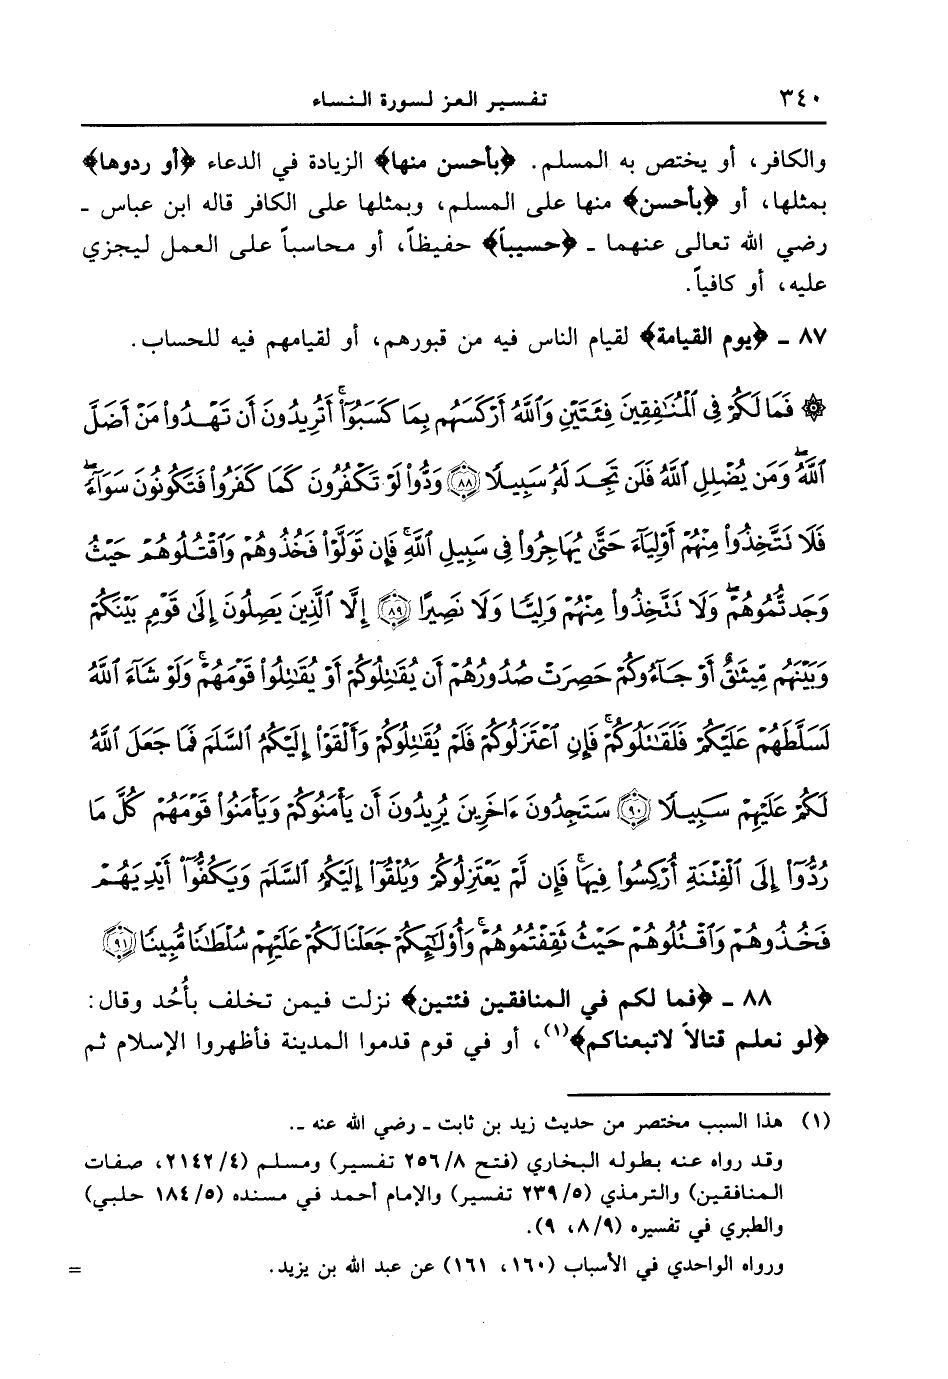 ٣٤٠ تفسير العز لسورة النساء
والكافر، أو يختص به المسلم. ﴿بأحسن منها﴾ الزيادة في الدعاء ﴿أو ردوها﴾
بمثلها، أو ﴿بأحسن﴾ منها على المسلم، وبمثلها على الكافر قاله ابن عباس ـ
رضي الله تعالى عنهما ـ ﴿حسيباً﴾ حفيظاً، أو محاسباً على العمل ليجزي
عليه، أو كافياً.
٨٧ ـ ﴿يوم القيامة﴾ لقيام الناس فيه من قبورهم، أو لقيامهم فيه للحساب.
۞ فَمَا لَكُمْ فِى ٱلْمُنَٰفِقِينَ فِئَتَيْنِ وَٱللَّهُ أَرْكَسَهُم بِمَا كَسَبُوٓا۟ ۚ أَتُرِيدُونَ أَن تَهْدُوا۟ مَنْ أَضَلَّ
ٱللَّهُ ۖ وَمَن يُضْلِلِ ٱللَّهُ فَلَن تَجِدَ لَهُۥ سَبِيلًا ٨٨ وَدُّوا۟ لَوْ تَكْفُرُونَ كَمَا كَفَرُوا۟ فَتَكُونُونَ سَوَآءً ۖ
فَلَا تَتَّخِذُوا۟ مِنْهُمْ أَوْلِيَآءَ حَتَّىٰ يُهَاجِرُوا۟ فِى سَبِيلِ ٱللَّهِ ۚ فَإِن تَوَلَّوْا۟ فَخُذُوهُمْ وَٱقْتُلُوهُمْ حَيْثُ
وَجَدتُّمُوهُمْ ۖ وَلَا تَتَّخِذُوا۟ مِنْهُمْ وَلِيًّا وَلَا نَصِيرًا ٨٩ إِلَّا ٱلَّذِينَ يَصِلُونَ إِلَىٰ قَوْمٍۭ بَيْنَكُمْ
وَبَيْنَهُم مِّيثَٰقٌ أَوْ جَآءُوكُمْ حَصِرَتْ صُدُورُهُمْ أَن يُقَٰتِلُوكُمْ أَوْ يُقَٰتِلُوا۟ قَوْمَهُمْ ۚ وَلَوْ شَآءَ ٱللَّهُ
لَسَلَّطَهُمْ عَلَيْكُمْ فَلَقَٰتَلُوكُمْ ۚ فَإِنِ ٱعْتَزَلُوكُمْ فَلَمْ يُقَٰتِلُوكُمْ وَأَلْقَوْا۟ إِلَيْكُمُ ٱلسَّلَمَ فَمَا جَعَلَ ٱللَّهُ
لَكُمْ عَلَيْهِمْ سَبِيلًا ٩٠ سَتَجِدُونَ ءَاخَرِينَ يُرِيدُونَ أَن يَأْمَنُوكُمْ وَيَأْمَنُوا۟ قَوْمَهُمْ كُلَّ مَا
رُدُّوٓا۟ إِلَى ٱلْفِتْنَةِ أُرْكِسُوا۟ فِيهَا ۚ فَإِن لَّمْ يَعْتَزِلُوكُمْ وَيُلْقُوٓا۟ إِلَيْكُمُ ٱلسَّلَمَ وَيَكُفُّوٓا۟ أَيْدِيَهُمْ
فَخُذُوهُمْ وَٱقْتُلُوهُمْ حَيْثُ ثَقِفْتُمُوهُمْ ۚ وَأُو۟لَٰٓئِكُمْ جَعَلْنَا لَكُمْ عَلَيْهِمْ سُلْطَٰنًا مُّبِينًا ٩١
٨٨ ـ ﴿فما لكم في المنافقين فئتين﴾ نزلت فيمن تخلف بأُحُد وقال:
﴿لو نعلم قتالاً لاتبعناكم﴾(١)، أو في قوم قدموا المدينة فأظهروا الإسلام ثم
(١) هذا السبب مختصر من حديث زيد بن ثابت ـ رضي الله عنه ـ.
وقد رواه عنه بطوله البخاري (فتح ٢٥٦/٨ تفسير) ومسلم (٢١٤٢/٤، صفات
المنافقين) والترمذي (٢٣٩/٥ تفسير) والإمام أحمد في مسنده (١٨٤/٥ حلبي)
والطبري في تفسيره (٨/٩، ٩).
ورواه الواحدي في الأسباب (١٦٠، ١٦١) عن عبد الله بن يزيد. =